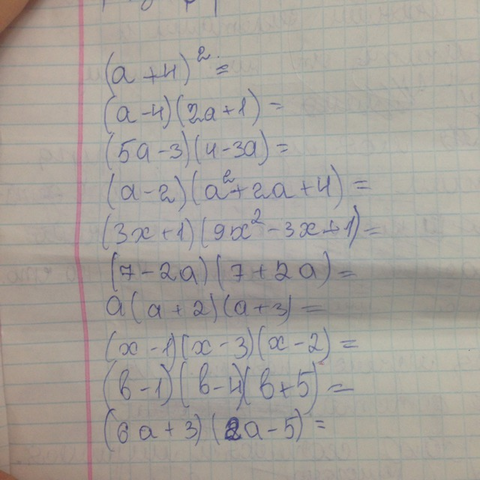 (a+4)² =
(a-4)(2a+1) =
(5a-3)(4-3a) =
(a-2)(a²+2a+4) =
(3x+1)(9x²-3x+1) =
(7-2a)(7+2a) =
a(a+2)(a+3) =
(x-1)(x-3)(x-2) =
(b-1)(b-4)(b+5) =
(6a+3)(2a-5) =